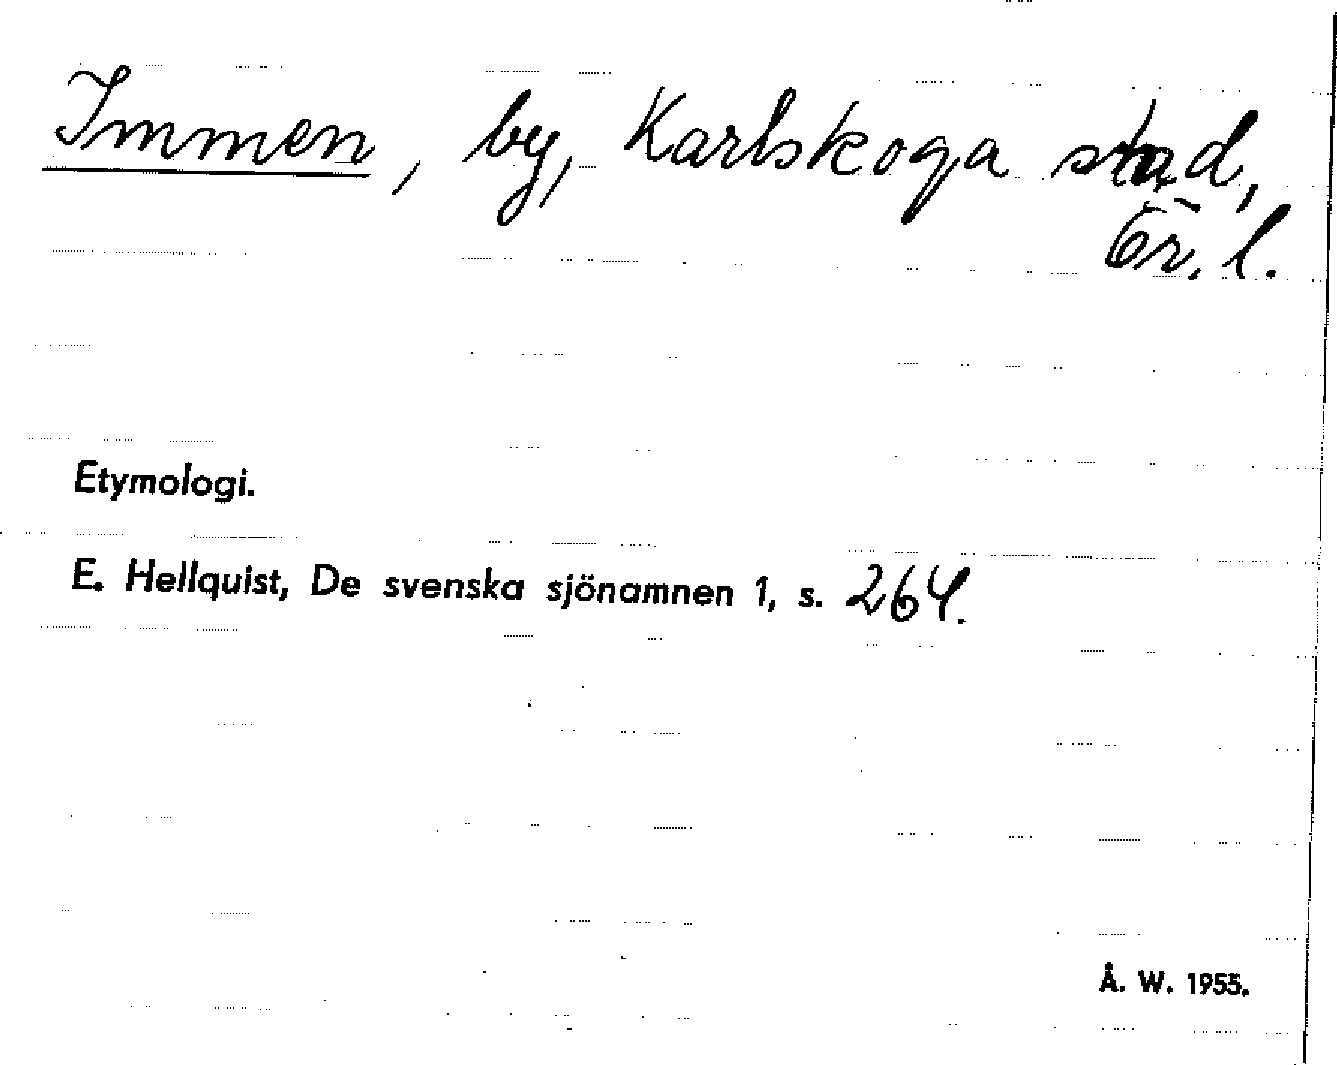 Immen, by, Karlskoga stad,
Ör. l.
Etymologi.
E. Hellquist, De svenska sjönamnen 1, s. 264.
Å. W. 1955.